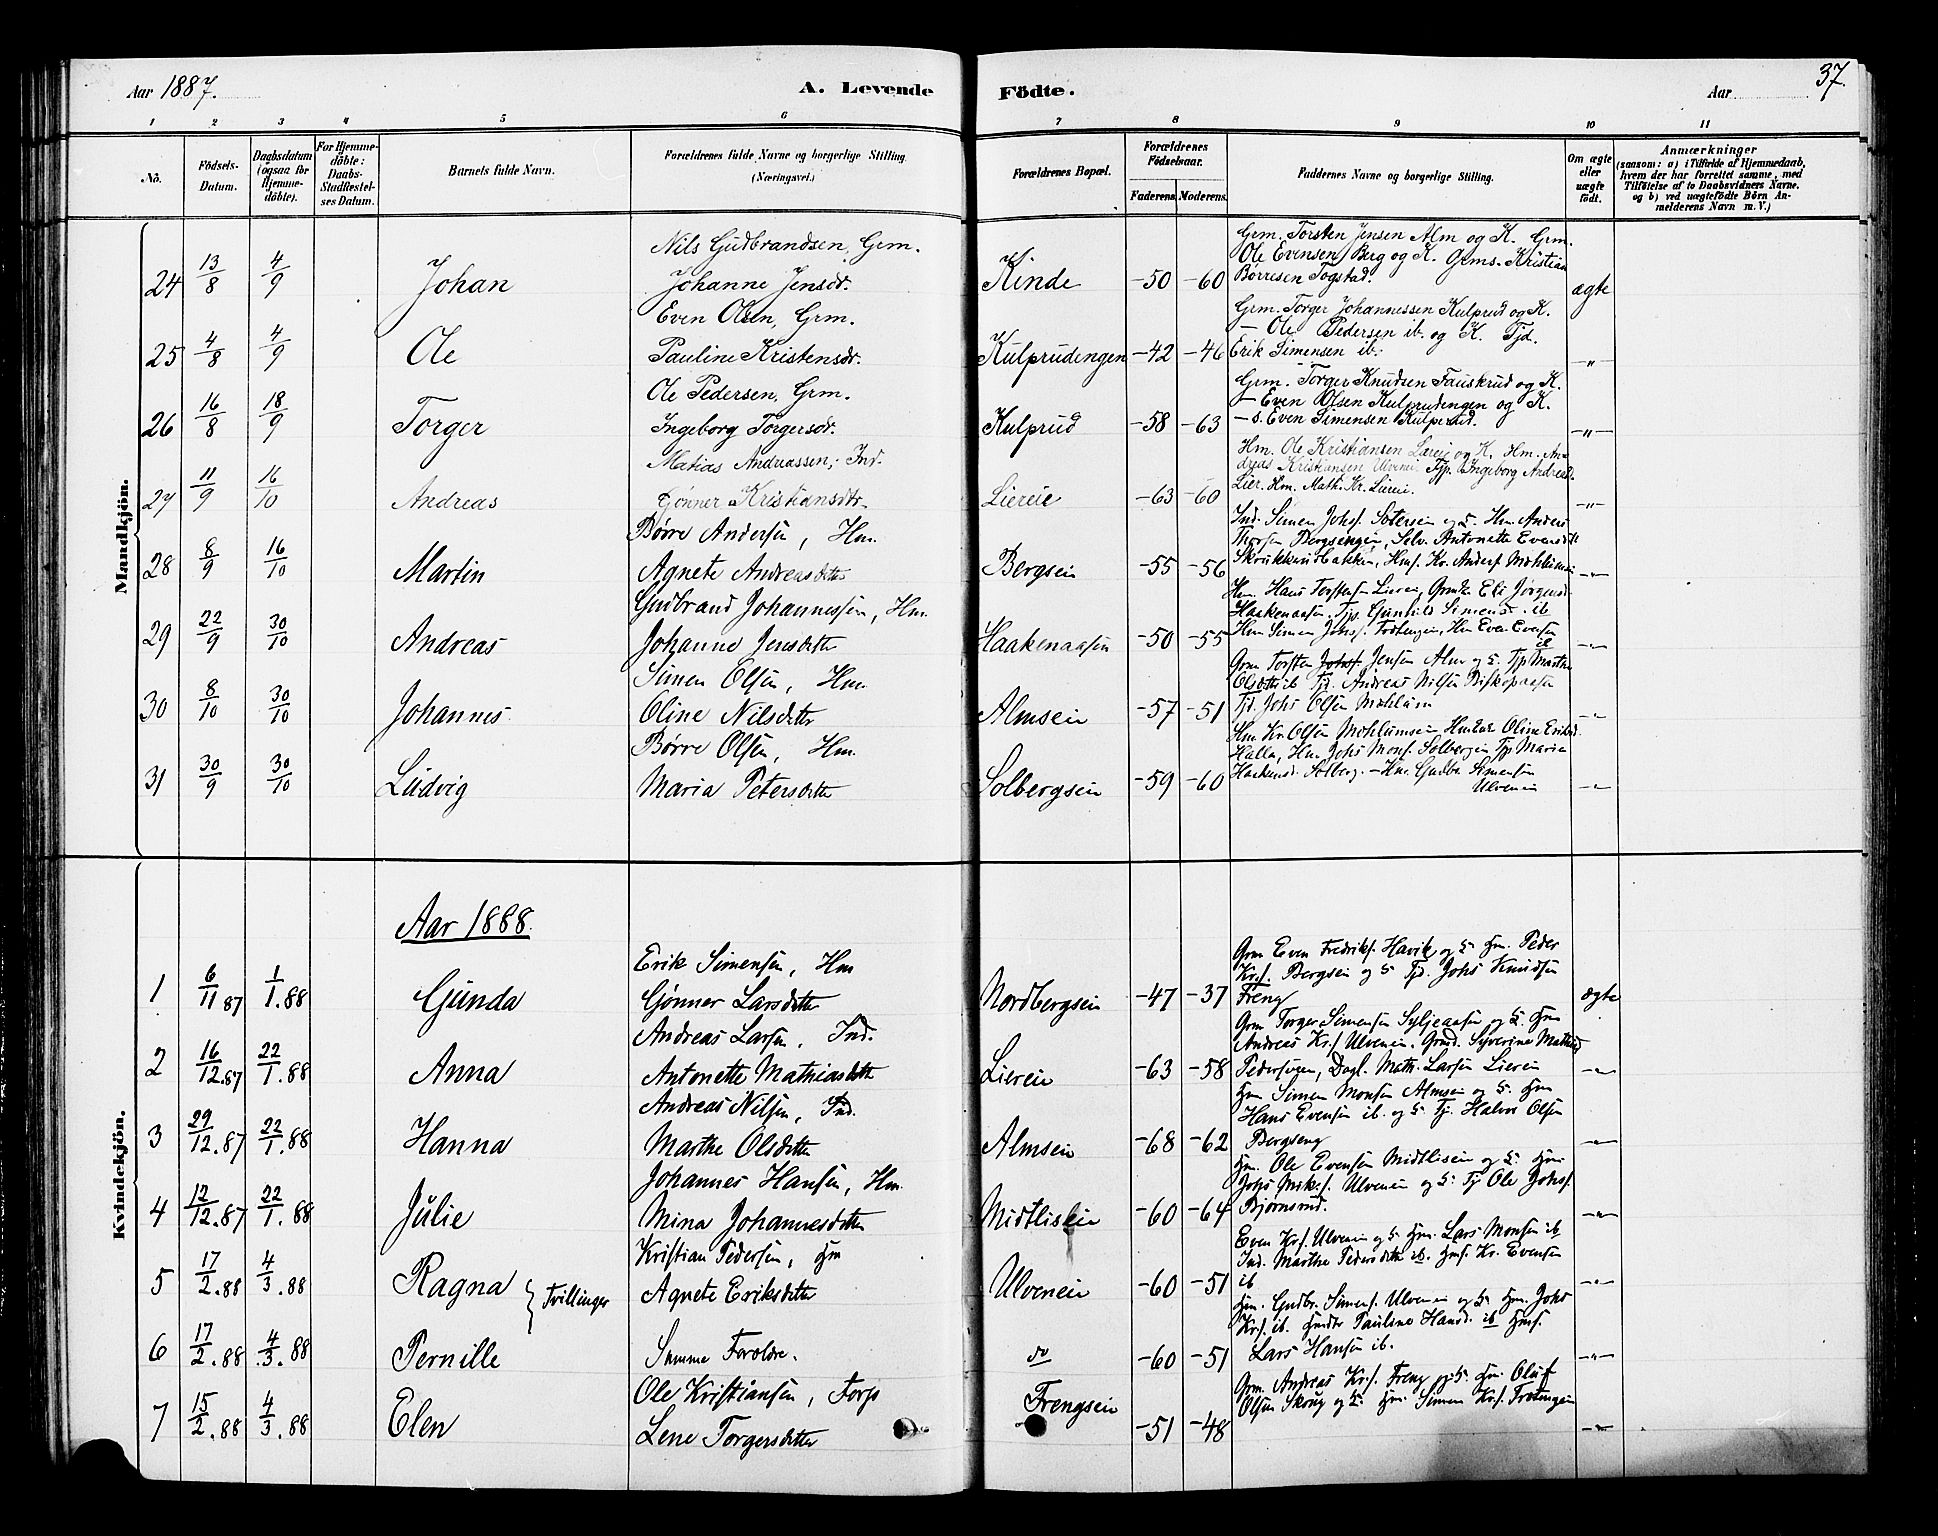 Aar 1887.
A. Levende Födte.
Aar
37.
1 2 3 4 5 6 7 8 9 10 11
No.
Födsels-Datum.
Daabsdatum (ogsaa for Hjemmedöbte).
For Hjemmedöbte: Daabs-Stadfæstelses Datum.
Barnets fulde Navn.
Forældrenes fulde Navne og borgerlige Stilling.
(Næringsvei.)
Forældrenes Bopæl.
Forældrenes Födselsaar.
Faderens. Moderens.
Faddernes Navne og borgerlige Stilling.
Om ægte eller uægte födt.
Anmærkninger
(saasom: a) i Tilfælde af Hjemmedaab, hvem der har forrettet samme, med Tilföielse af to Daabsvidners Navne. og b) ved uægtefödte Börn Anmelderens Navn m. V.)
Mandkjön.
24 13/8 4/9 Johan
Nils Gudbrandsen, Grm.
Johanne Jensdr.
Kinde -50 -60
Grm. Torsten Jensen Alm og K. Grm.
Ole Evensen Berg og K. Grms. Kristian
Börresen Togstad.
ægte
25 4/8 4/9 Ole
Even Olsen, Grm.
Pauline Kristensdr.
Kulprudengen -42 -46
Grm. Torger Johannessen Kulprud og K.
— Ole Pedersen ib. og K. Tjd.
Erik Simensen ib.
—"—
26 16/8 18/9 Torger
Ole Pedersen, Grm.
Ingeborg Torgersdr.
Kulprud -58 -63
Grm. Torger Knudsen Fauskrud og K.
— Even Olsen Kulprudengen og K.
— s. Even Simensen Kulprud.
—"—
27 11/9 16/10 Andreas
Matias Andreassen, Ind.
Gönner Kristiansdtr.
Liereie -63 -60
Hm. Ole Kristiansen Liereie og K. Hm. An-
dreas Kristiansen Ulvenei. Tjp. Ingeborg Andreasd.
Lier. Hm. Math. Kr. Liereie.
—"—
28 8/9 16/10 Martin
Börre Andersen, Hm.
Agnete Andreasdatter
Bergseie -55 -56
Ind. Simen Johs. og K. Hm. Anders
Thorsen Bergsengen, Selv. Antonette Evensdtr
Hms. Kr. Anders.
—"—
29 22/9 30/10 Andreas
Gudbrand Johannessen, Hm.
Johanne Jensdatter
Haakenaasen -50 -55
Hm. Hans Torstensen Liereie, Eli Jörgensd.
Haakenaasen, Tjp. Gunhild Simensd. ib
Hm Simen Johs. Hm Even Evensen
ib
—"—
30 8/10 30/10 Johannes
Simen Olsen, Hm.
Oline Nilsdatter
Almseie -57 -51
Grm Torsten Jensen Alm og K. Tjp Marthe
Olsdatter ib Tjd. Andreas Nilsen Biskopaasen
Tjd. Johs Olsen
—"—
31 30/9 30/10 Ludvig
Börre Olsen, Hm.
Maria Petersdatter
Solbergseie -59 -60
Hm Kr. Olsen Oline
Hm. Johs Mons. Solbergeie Tjp Maria
Solberg. — Hm. Gudbr. Simensen
Ulveneie
—"—
Kvindekjön.
Aar 1888.
1 6/11 87 1/1.88 Gunda
Erik Simensen, Hm
Gönner Larsdatter
Nordbergseie -47 -37
Grm Even Fredriks. Havik og K. Hm. Peder
Krs. Bergseie og K Tjd. Johs Knudsen
Freng
ægte
2 16/12.87 22/1.88 Anna
Andreas Larsen, Ind.
Antonette Mathiasdatter
Liereie -63 -58
Grm Torger Simensen Syljeaasen og K. Hm
Andreas Krs Ulveneie. Syverine Mathisd
Pedersveen, Dagl. Math. Larsen Liereie
—"—
3 29/12.87 22/1.88 Hanna
Andreas Nilsen, Ind.
Marthe Olsdatter
Almseie -68 -62
Hm Simen Monsen Almseie og K. Hm
Hans Evensen ib. og K. Tj. Halvor Olsen
Bergseng
—"—
4 12/12.87 22/1.88 Julie
Johannes Hansen, Hm.
Mina Johannesdatter
Midtliseie -60 -64
Hm. Ole Evensen Midtliseie og K. Hm
Johs Mik.s. Ulveneie og K. Tj Ole Johs.
Björnsrud.
—"—
5 17/2.88 4/3.88 Ragna
Tvillinger
Kristian Pedersen, Hm
Agnete Eriksdatter
Ulveneie -60 -51
Even Krs. Ulveneie og K. Hm. Lars Monsen ib
Ind. Marthe Pedersdatter ib. Hms. Kr. Evensen
ib
—"—
6 17/2.88 4/3.88 Pernille
Samme Foreldre.
do -60 -51
Hm. Gudbr. Simens. Ulveneie og K. Hm. Johs
Krs. ib. Pauline Hansd. ib Hms.
Lars Hansen ib.
—"—
7 15/2.88 4/3.88 Elen
Ole Kristiansen, Torp
Lene Torgersdatter
Frengseie -51 -48
Grm. Andreas Krs. Freng og K. Hm. Oluf
Olsen Skoug og K. Hm. Simen Krs.
—"—